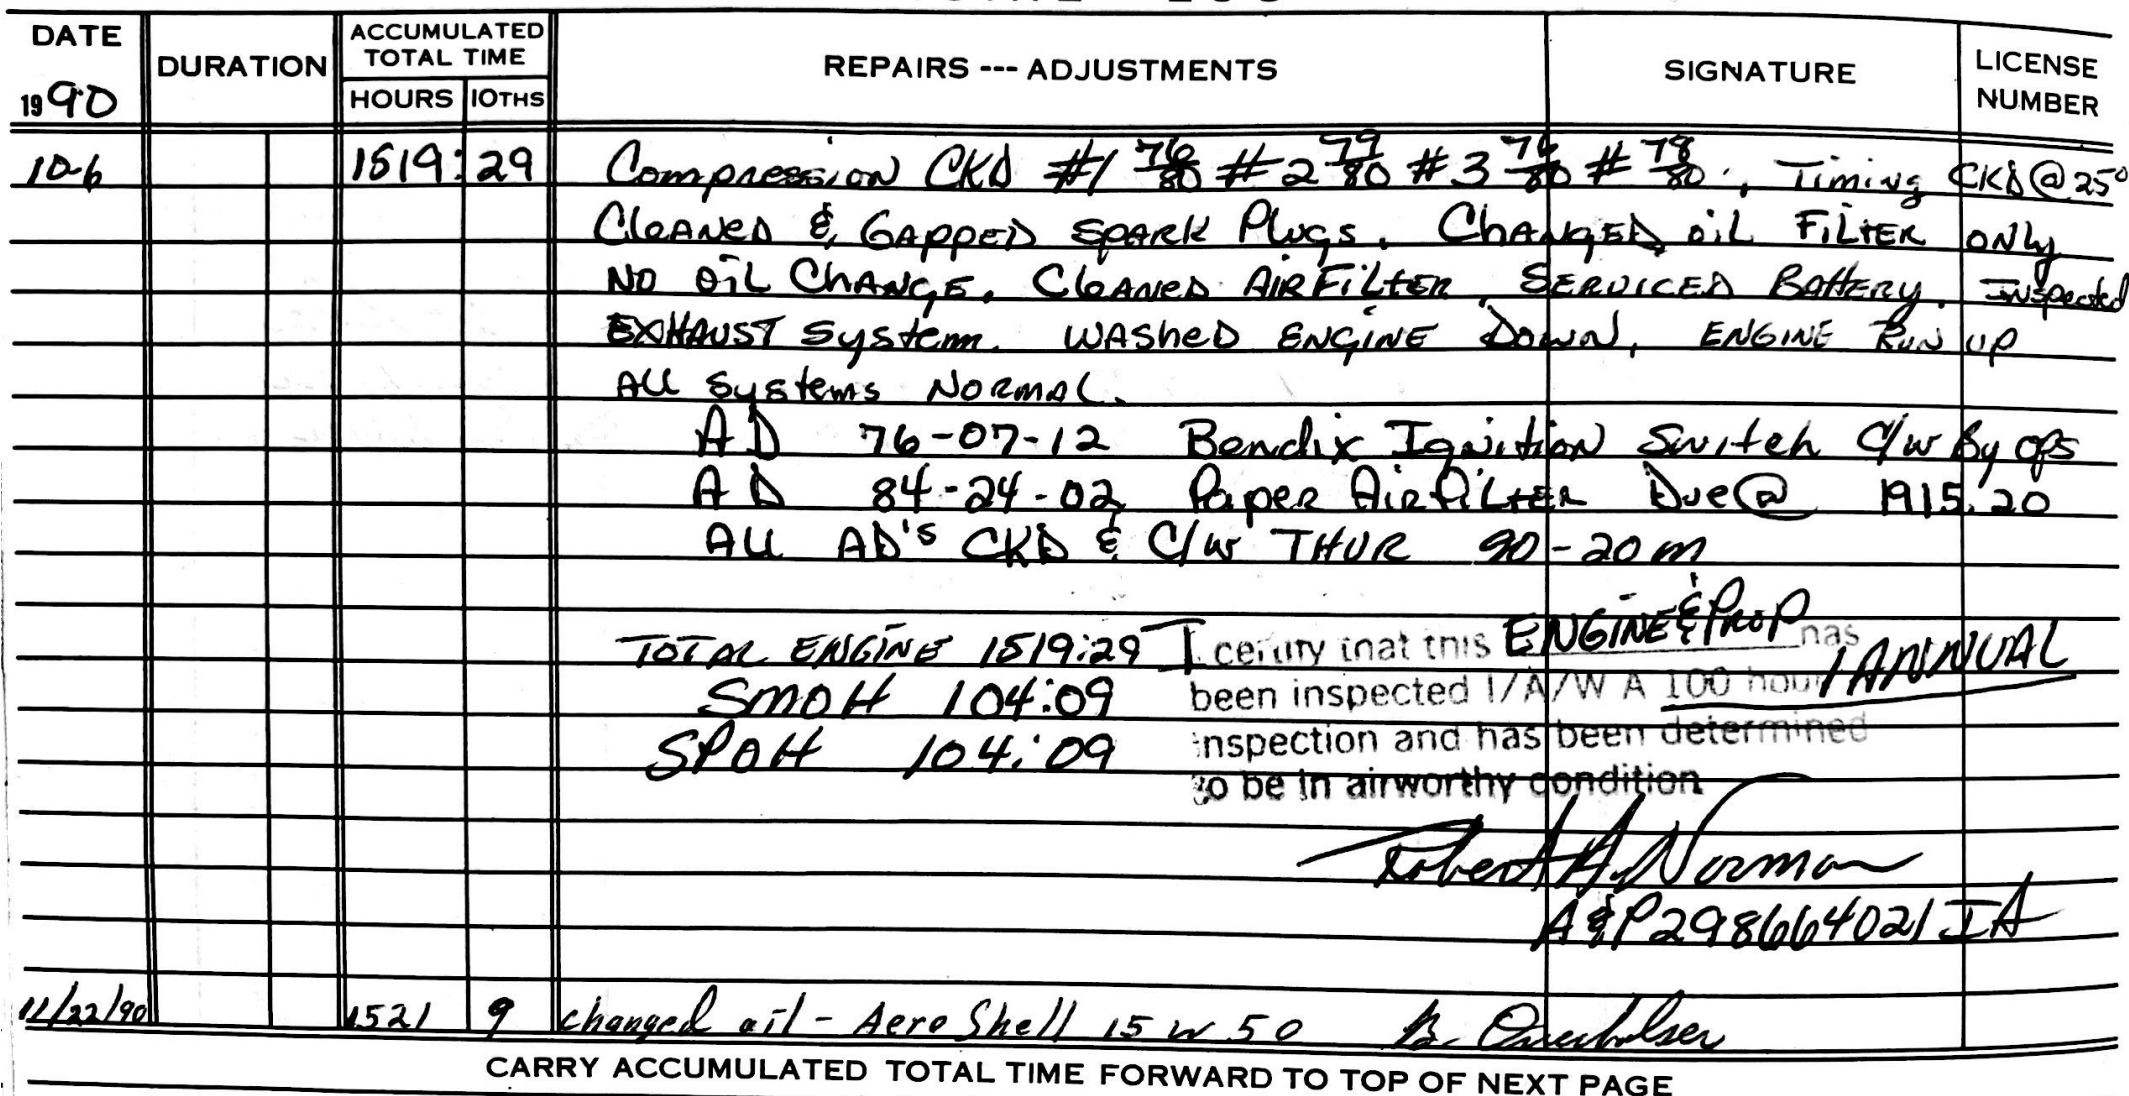 DATE
1990
DURATION
ACCUMULATED
TOTAL TIME
HOURS 10THS
REPAIRS --- ADJUSTMENTS
SIGNATURE
LICENSE
NUMBER
10-6 1519:29 Compression CKD #1 76/80 #2 79/80 #3 76/80 # 78/80, Timing CKD @ 25°
Cleaned & Gapped Spark Plugs. Changed oil Filter only
No oil Change. Cleaned AirFilter. Serviced Battery. Inspected
Exhaust System. Washed Engine Down, Engine Run up
All Systems Normal.
AD 76-07-12 Bendix Ignition Switch C/W By ops
AD 84-24-02 Paper AirFilter Due @ 1915.20
All AD's CKD & C/W THUR 90-20 m
TOTAL ENGINE 1519:29
SMOH 104:09
SPOH 104:09
I certify that this ENGINE & PROP has
been inspected I/A/W A 100 hour / ANNUAL
inspection and has been determined
to be in airworthy condition
Robert A. Norman
A&P298664021 IA
11/22/90 1521 9 changed oil - Aero Shell 15 w 50 B. Overholser
CARRY ACCUMULATED TOTAL TIME FORWARD TO TOP OF NEXT PAGE